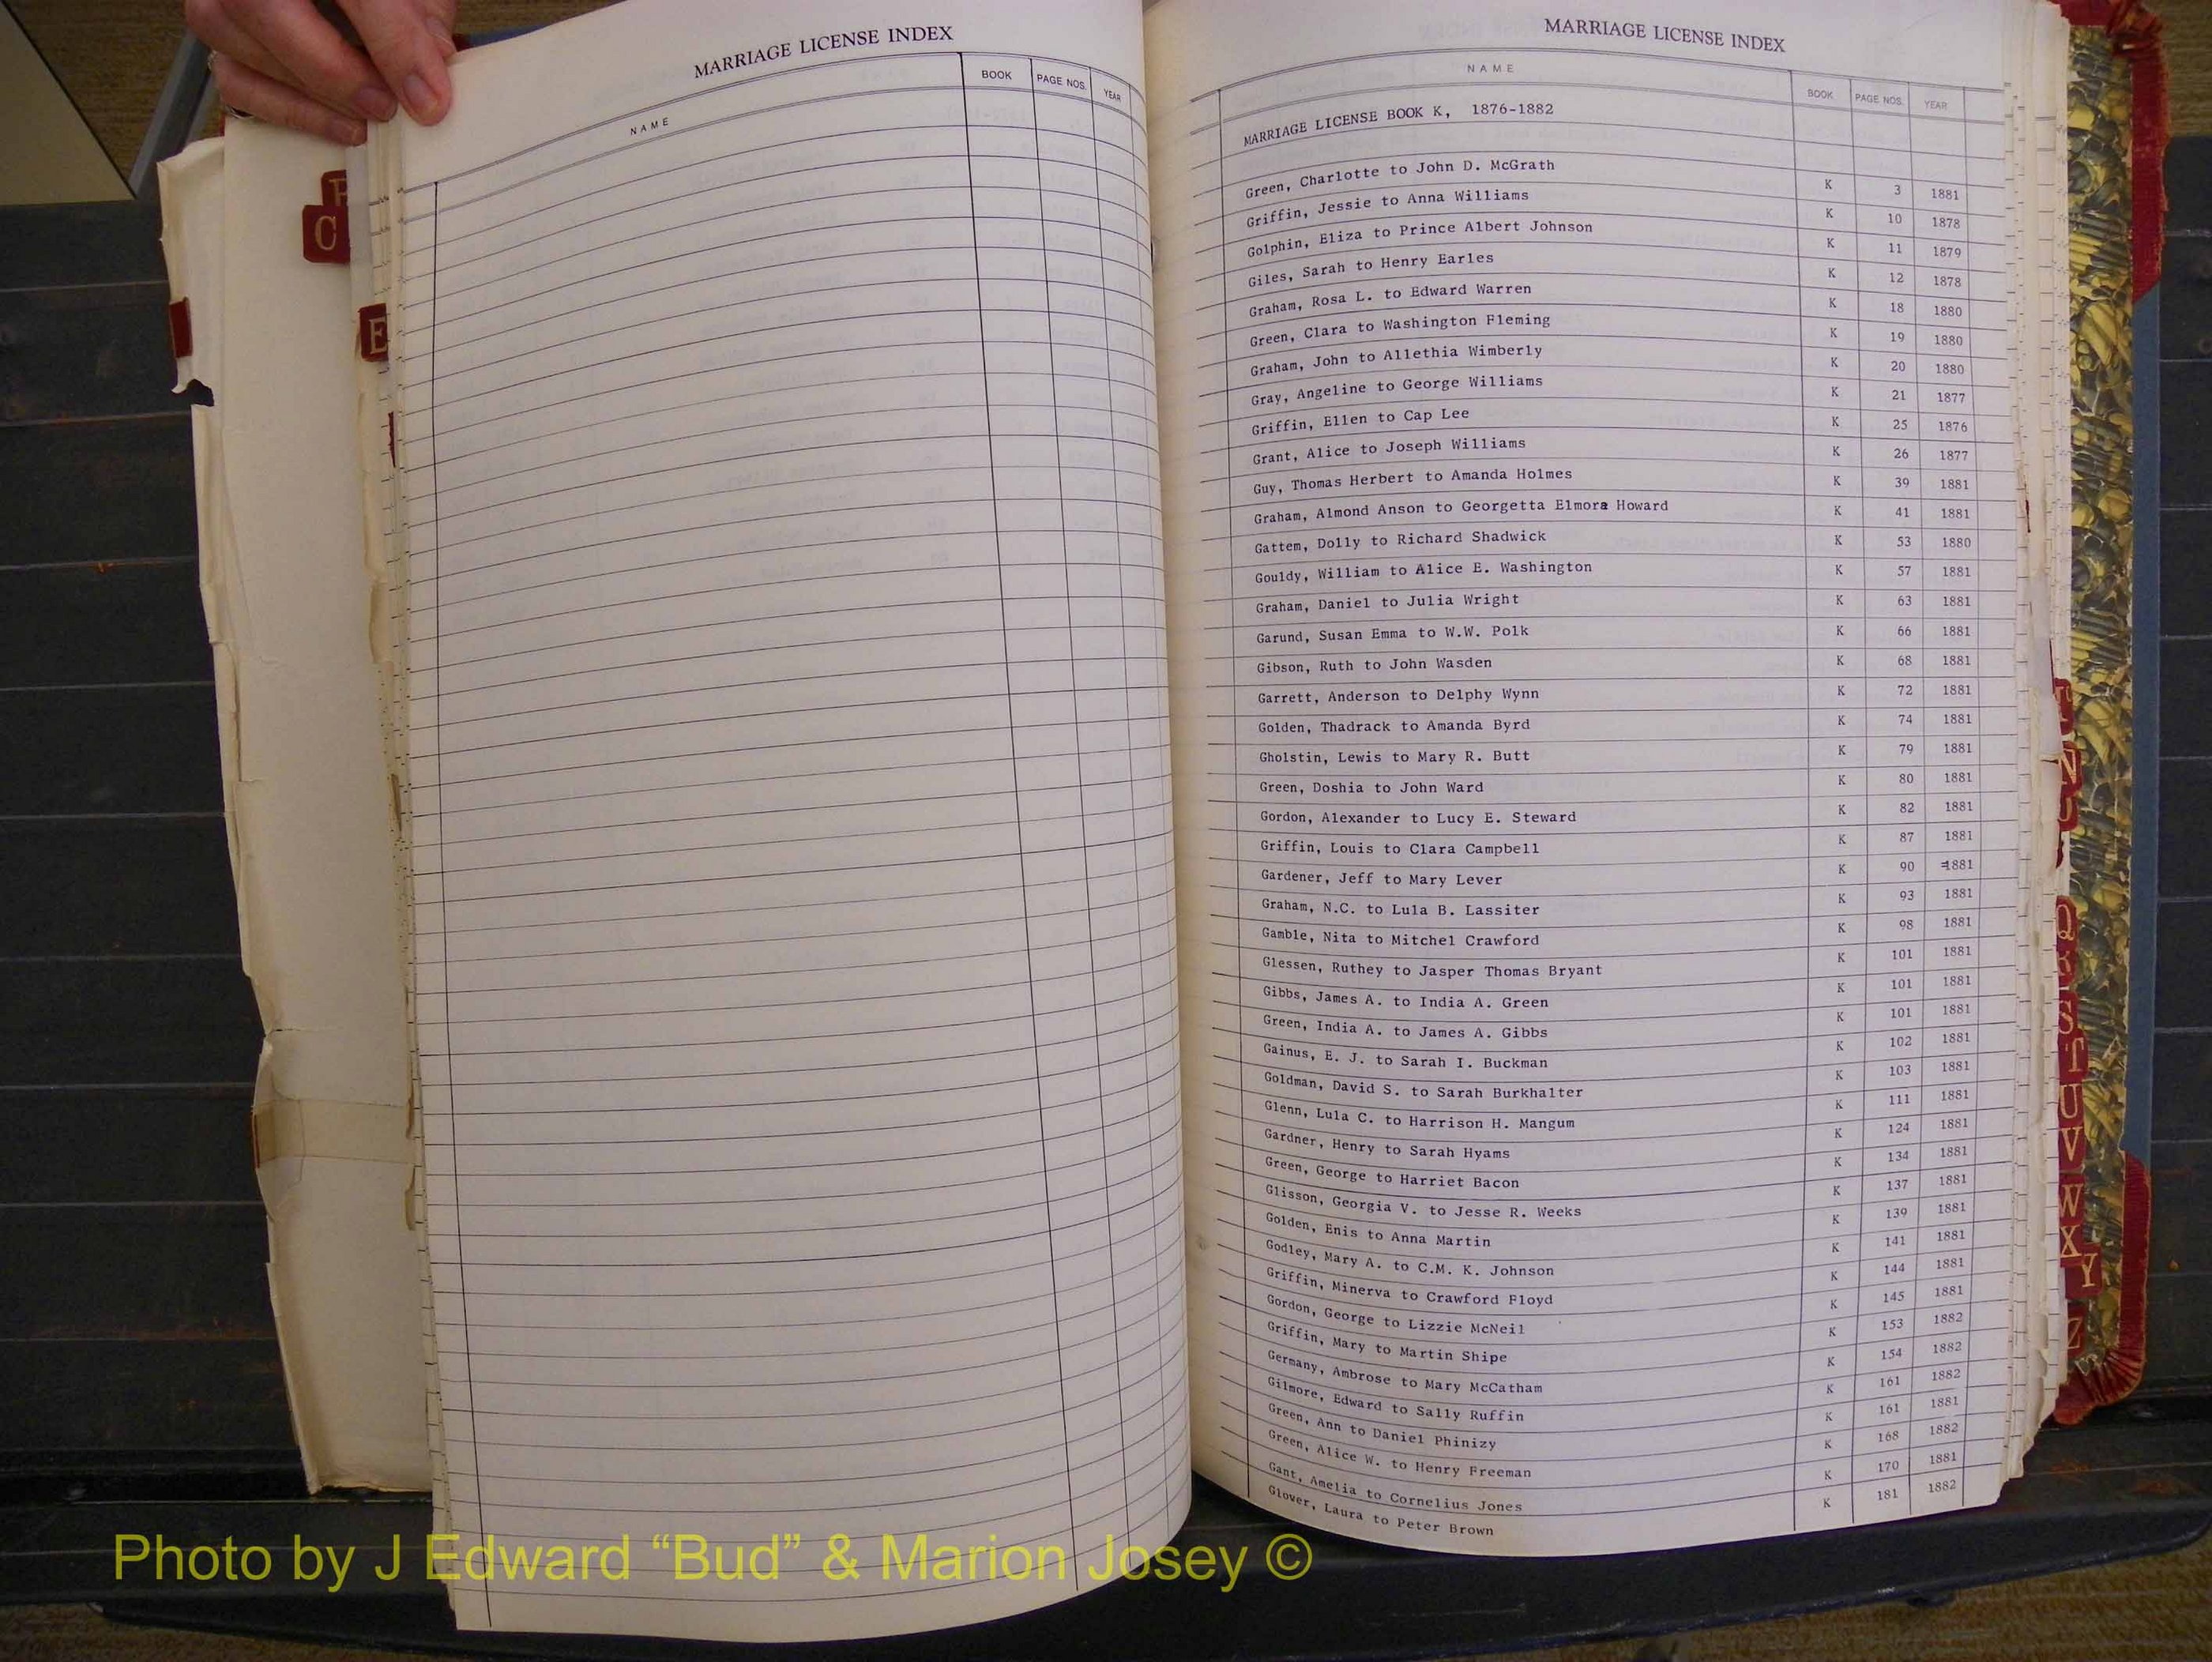 MARRIAGE LICENSE INDEX
NAME BOOK PAGE NOS. YEAR
C
E
MARRIAGE LICENSE INDEX
NAME BOOK PAGE NOS. YEAR
MARRIAGE LICENSE BOOK K, 1876-1882
Green, Charlotte to John D. McGrath K 3 1881
Griffin, Jessie to Anna Williams K 10 1878
Golphin, Eliza to Prince Albert Johnson K 11 1879
Giles, Sarah to Henry Earles K 12 1878
Graham, Rosa L. to Edward Warren K 18 1880
Green, Clara to Washington Fleming K 19 1880
Graham, John to Allethia Wimberly K 20 1880
Gray, Angeline to George Williams K 21 1877
Griffin, Ellen to Cap Lee K 25 1876
Grant, Alice to Joseph Williams K 26 1877
Guy, Thomas Herbert to Amanda Holmes K 39 1881
Graham, Almond Anson to Georgetta Elmora Howard K 41 1881
Gattem, Dolly to Richard Shadwick K 53 1880
Gouldy, William to Alice E. Washington K 57 1881
Graham, Daniel to Julia Wright K 63 1881
Garund, Susan Emma to W.W. Polk K 66 1881
Gibson, Ruth to John Wasden K 68 1881
Garrett, Anderson to Delphy Wynn K 72 1881
Golden, Thadrack to Amanda Byrd K 74 1881
Gholstin, Lewis to Mary R. Butt K 79 1881
Green, Doshia to John Ward K 80 1881
Gordon, Alexander to Lucy E. Steward K 82 1881
Griffin, Louis to Clara Campbell K 87 1881
Gardener, Jeff to Mary Lever K 90 1881
Graham, N.C. to Lula B. Lassiter K 93 1881
Gamble, Nita to Mitchel Crawford K 98 1881
Glessen, Ruthey to Jasper Thomas Bryant K 101 1881
Gibbs, James A. to India A. Green K 101 1881
Green, India A. to James A. Gibbs K 101 1881
Gainus, E. J. to Sarah I. Buckman K 102 1881
Goldman, David S. to Sarah Burkhalter K 103 1881
Glenn, Lula C. to Harrison H. Mangum K 111 1881
Gardner, Henry to Sarah Hyams K 124 1881
Green, George to Harriet Bacon K 134 1881
Glisson, Georgia V. to Jesse R. Weeks K 137 1881
Golden, Enis to Anna Martin K 139 1881
Godley, Mary A. to C.M. K. Johnson K 141 1881
Griffin, Minerva to Crawford Floyd K 144 1881
Gordon, George to Lizzie McNeil K 145 1881
Griffin, Mary to Martin Shipe K 153 1882
Germany, Ambrose to Mary McCatham K 154 1882
Gilmore, Edward to Sally Ruffin K 161 1882
Green, Ann to Daniel Phinizy K 161 1881
Green, Alice W. to Henry Freeman K 168 1882
Gant, Amelia to Cornelius Jones K 170 1881
Glover, Laura to Peter Brown K 181 1882
Q
S
T
U
V
W
X
Y
Z
Photo by J Edward “Bud” & Marion Josey ©